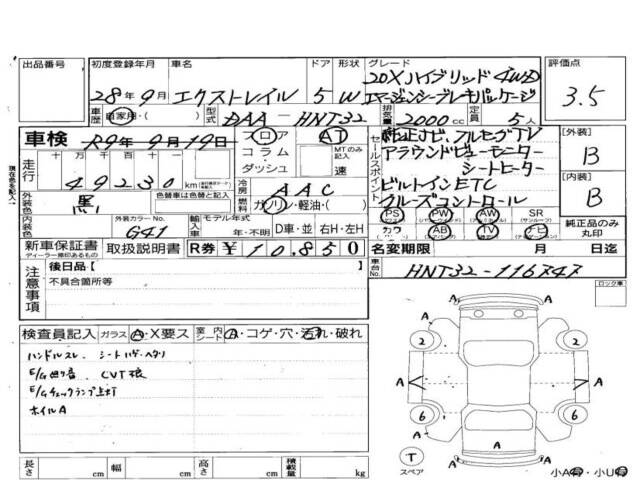 出品番号 初度登録年月 車名 ドア 形状 グレード 評価点
28年9月 エクストレイル 5 W 20Xハイブリッド 4WD
エマージェンシーブレーキパッケージ
3.5
車歴 自家用・( ) 型式 DAA-HNT32 排気量 2000cc 定員 5人
車検 R9年9月19日 フロア AT
コラム MTのみ記入
ダッシュ 速
セールスポイント
純正ナビ、フルセグTV
アラウンドビューモニター
シートヒーター
ビルトインETC
クルーズコントロール
【外装】
B
【内装】
B
走行 十万 万 千 百 十
49230km
冷房 AAC
外装色 黒 色替車は色替と記入
燃料 ガソリン・軽油・( )
内装色 外装カラーNo. G41 輸入車 モデル年式 年・不明 D車・並 右H・左H
PS PW AW SR
カワ AB TV ナビ
純正品のみ丸印
新車保証書 取扱説明書 R券 ¥10.850
ディーラー捺印あるもの
名変期限 月 日迄
車台No. HNT32-116747
注意事項
後日品【
不具合箇所等
ロック車
現在色を記入
検査員記入 ガラス A・X要ス 室内シート A・コゲ・穴・汚れ・破れ
ハンドルスレ、シートハゲ・ヘタリ
E/G廻り音、CVT痕
E/Gチェックランプ点灯
ホイルA
A A
2 2
A A A
6 6
A A
A
T
スペア
小A有・小U有
長さ cm 幅 cm 高さ cm 積載量 kg